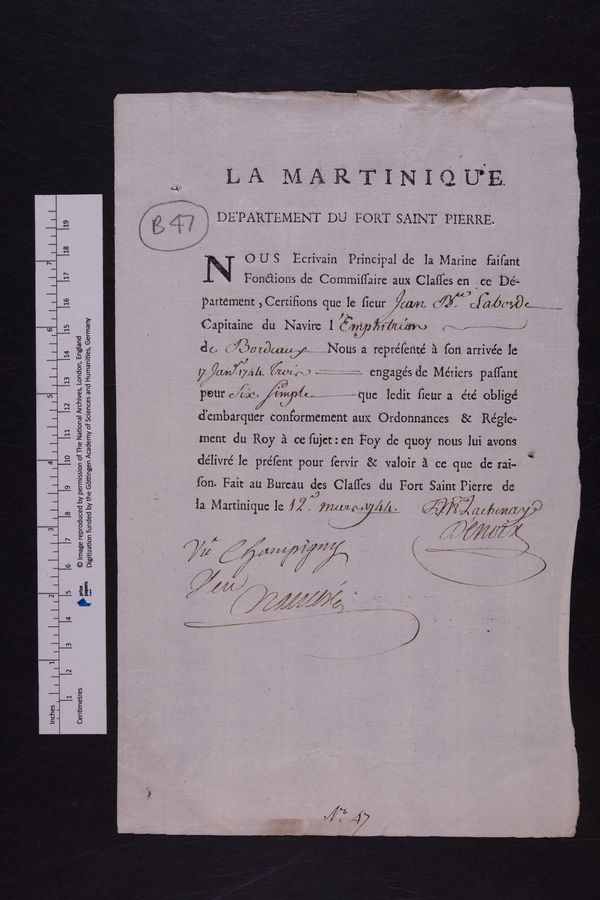 LA MARTINIQUE.
B 47
DÉPARTEMENT DU FORT SAINT PIERRE.
NOUS Ecrivain Principal de la Marine faiſant
Fonctions de Commiſſaire aux Claſſes en ce Dé-
partement, Certifions que le ſieur Jean Bte. Laborde
Capitaine du Navire l'Emphitrion
de Bordeaux Nous a repréſenté à ſon arrivée le
17 Janr. 1744. trois engagés de Métiers paſſant
pour Six ſimple que ledit ſieur a été obligé
d'embarquer conformement aux Ordonnances & Régle-
ment du Roy à ce ſujet: en Foy de quoy nous lui avons
délivré le préſent pour ſervir & valoir à ce que de rai-
ſon. Fait au Bureau des Claſſes du Fort Saint Pierre de
la Martinique le 12 mars 1744.
Vu Champigny
Veu
N.º 47
Inches
1 2 3 4 5 6 7
Centimetres
1 2 3 4 5 6 7 8 9 10 11 12 13 14 15 16 17 18 19
prize papers
© Image reproduced by permission of The National Archives, London, England
Digitization funded by the Göttingen Academy of Sciences and Humanities, Germany